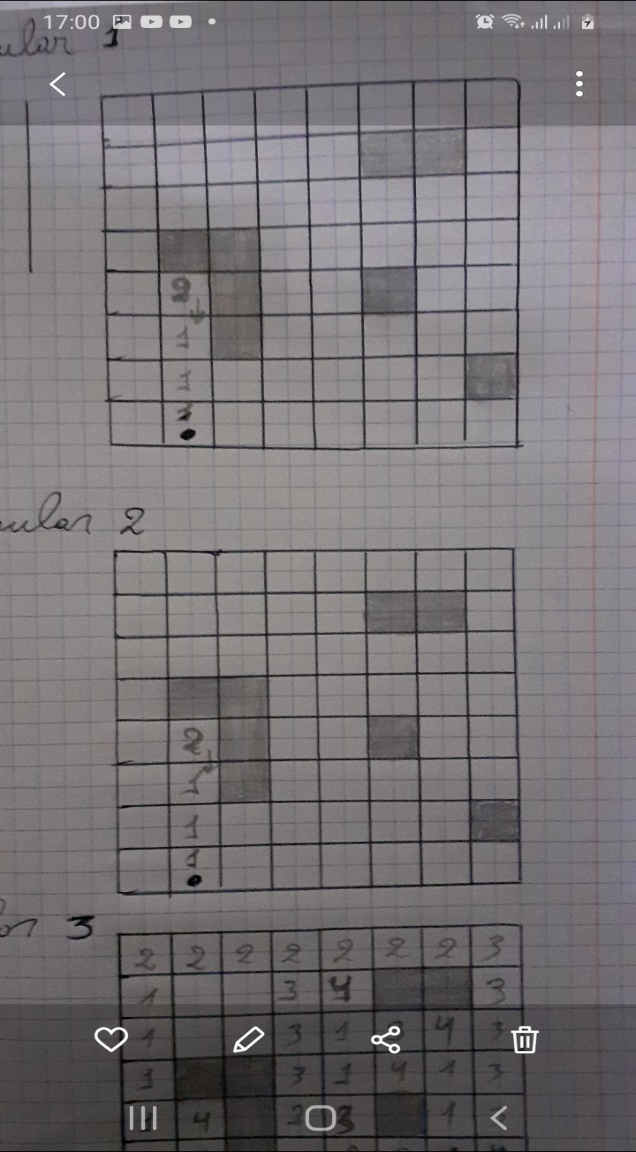 17:00
ular 1
2
1
1
1
mular 2
2
1
1
1
or 3
2 2 2 2 2 2 2 3
1 3 4 3
1 3 1 4 3
1 3 1 4 1 3
4 2 3 1